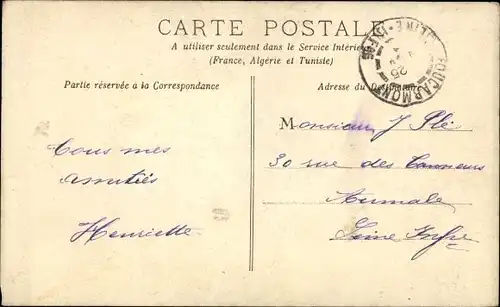 CARTE POSTALE
A utiliser seulement dans le Service Intérieur
(France, Algérie et Tunisie)
Partie réservée à la Correspondance
Adresse du Destinataire
FOUCARMONT
25
Monsieur J Plé
30 rue des Tanneurs
Aumale
Seine Infre
Tous mes
amitiés
Henriette